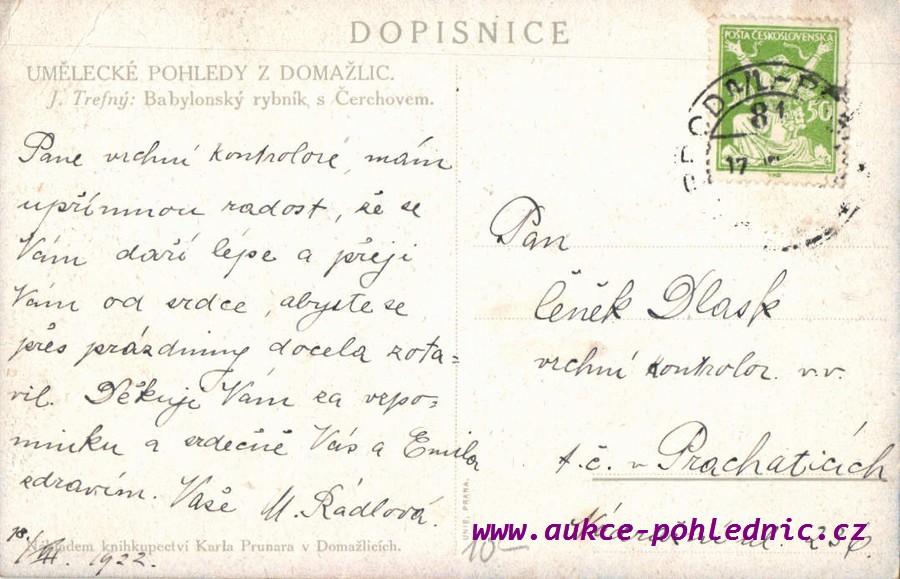 DOPISNICE
UMĚLECKÉ POHLEDY Z DOMAŽLIC.
J. Trefný: Babylonský rybník s Čerchovem.
Pane vrchní kontrolore, mám
upřímnou radost, že se
Vám daří lépe a přeji
Vám od srdce, abyste se
přes prázdniny docela zota-
vil. Děkuji Vám za vzpo-
mínku a srdečně Vás a Emila
zdravím. Vaše M. Rádlová.
1922.
Nákladem knihkupectví Karla Prunara v Domažlicích.
POŠTA ČESKOSLOVENSKA
50
81
17
Pan
Čeněk Dlask
vrchní kontrolor v.v.
t. č. v Prachaticích
UNIE, PRAHA.
10-
www.aukce-pohlednic.cz